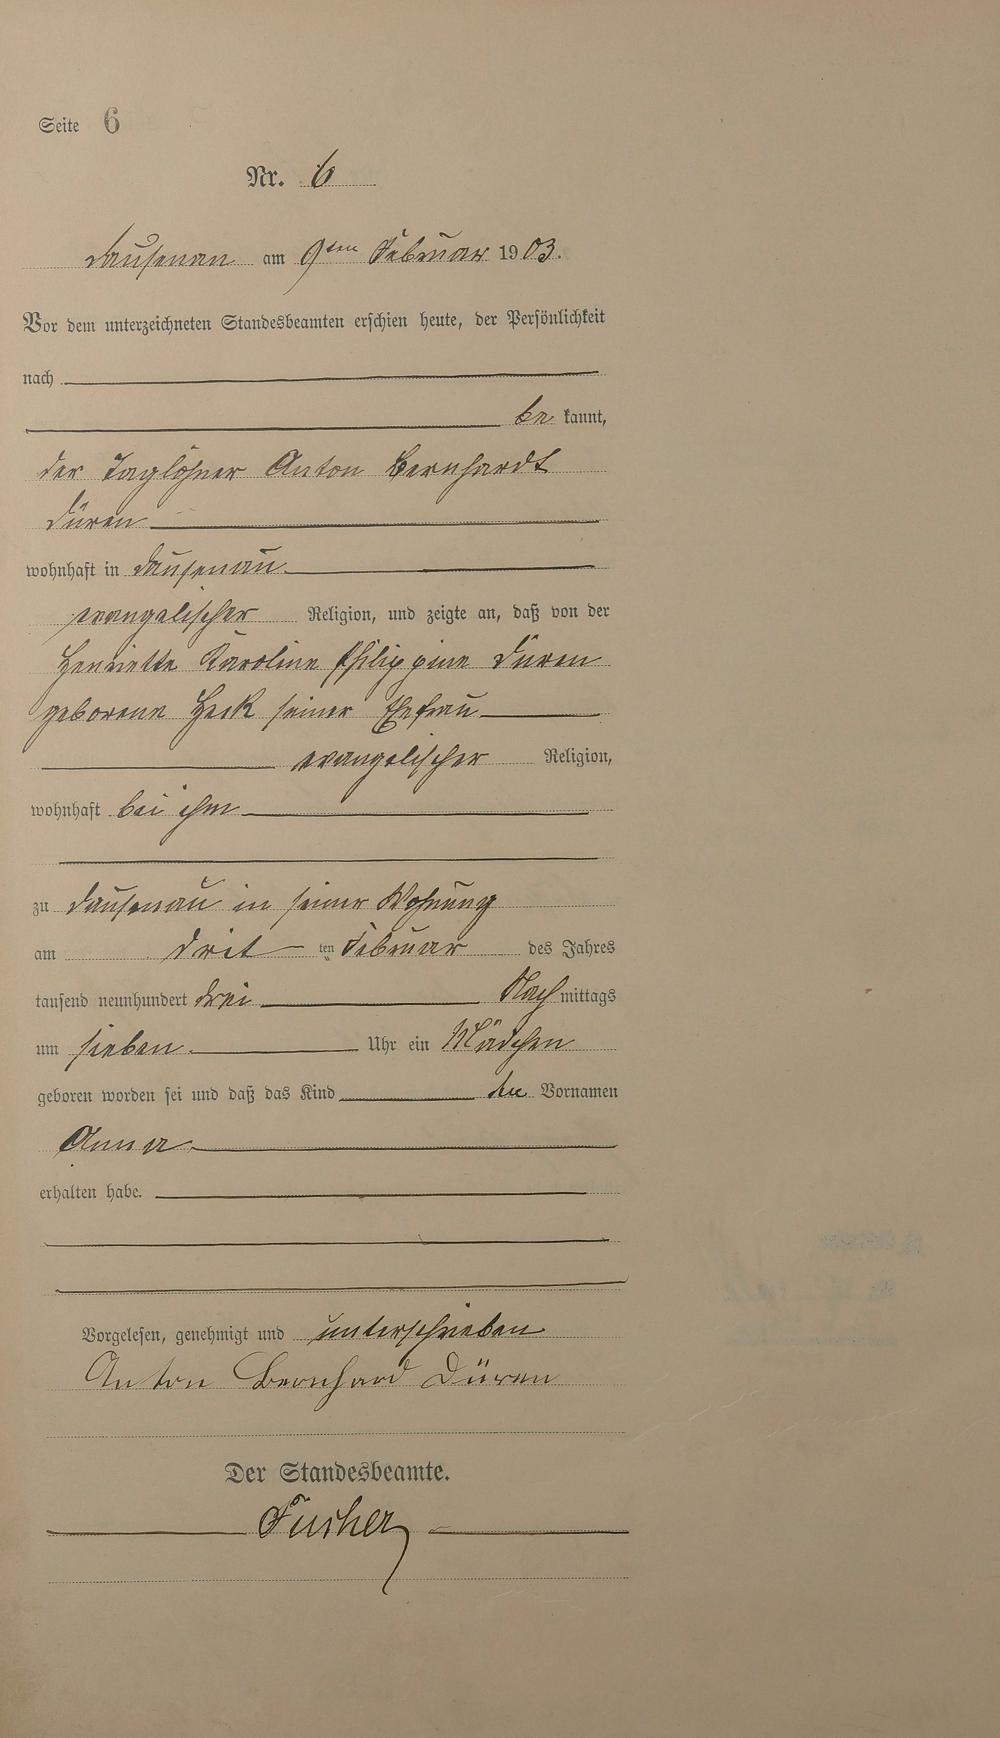 Seite 6
Nr. 6
Dausenau am 9ten Februar 1903.
Vor dem unterzeichneten Standesbeamten erschien heute, der Persönlichkeit
nach
be kannt,
der Taglöhner Anton Bernhardt
Düren
wohnhaft in Dausenau
evangelischer Religion, und zeigte an, daß von der
Henriette Karoline Philippine Düren
geborene Heck seiner Ehefrau
evangelischer Religion,
wohnhaft bei ihm
zu Dausenau in seiner Wohnung
am drit ten Februar des Jahres
tausend neunhundert drei Nach mittags
um sieben Uhr ein Mädchen
geboren worden sei und daß das Kind den Vornamen
Anna
erhalten habe.
Vorgelesen, genehmigt und unterschrieben
Anton Bernhard Düren
Der Standesbeamte.